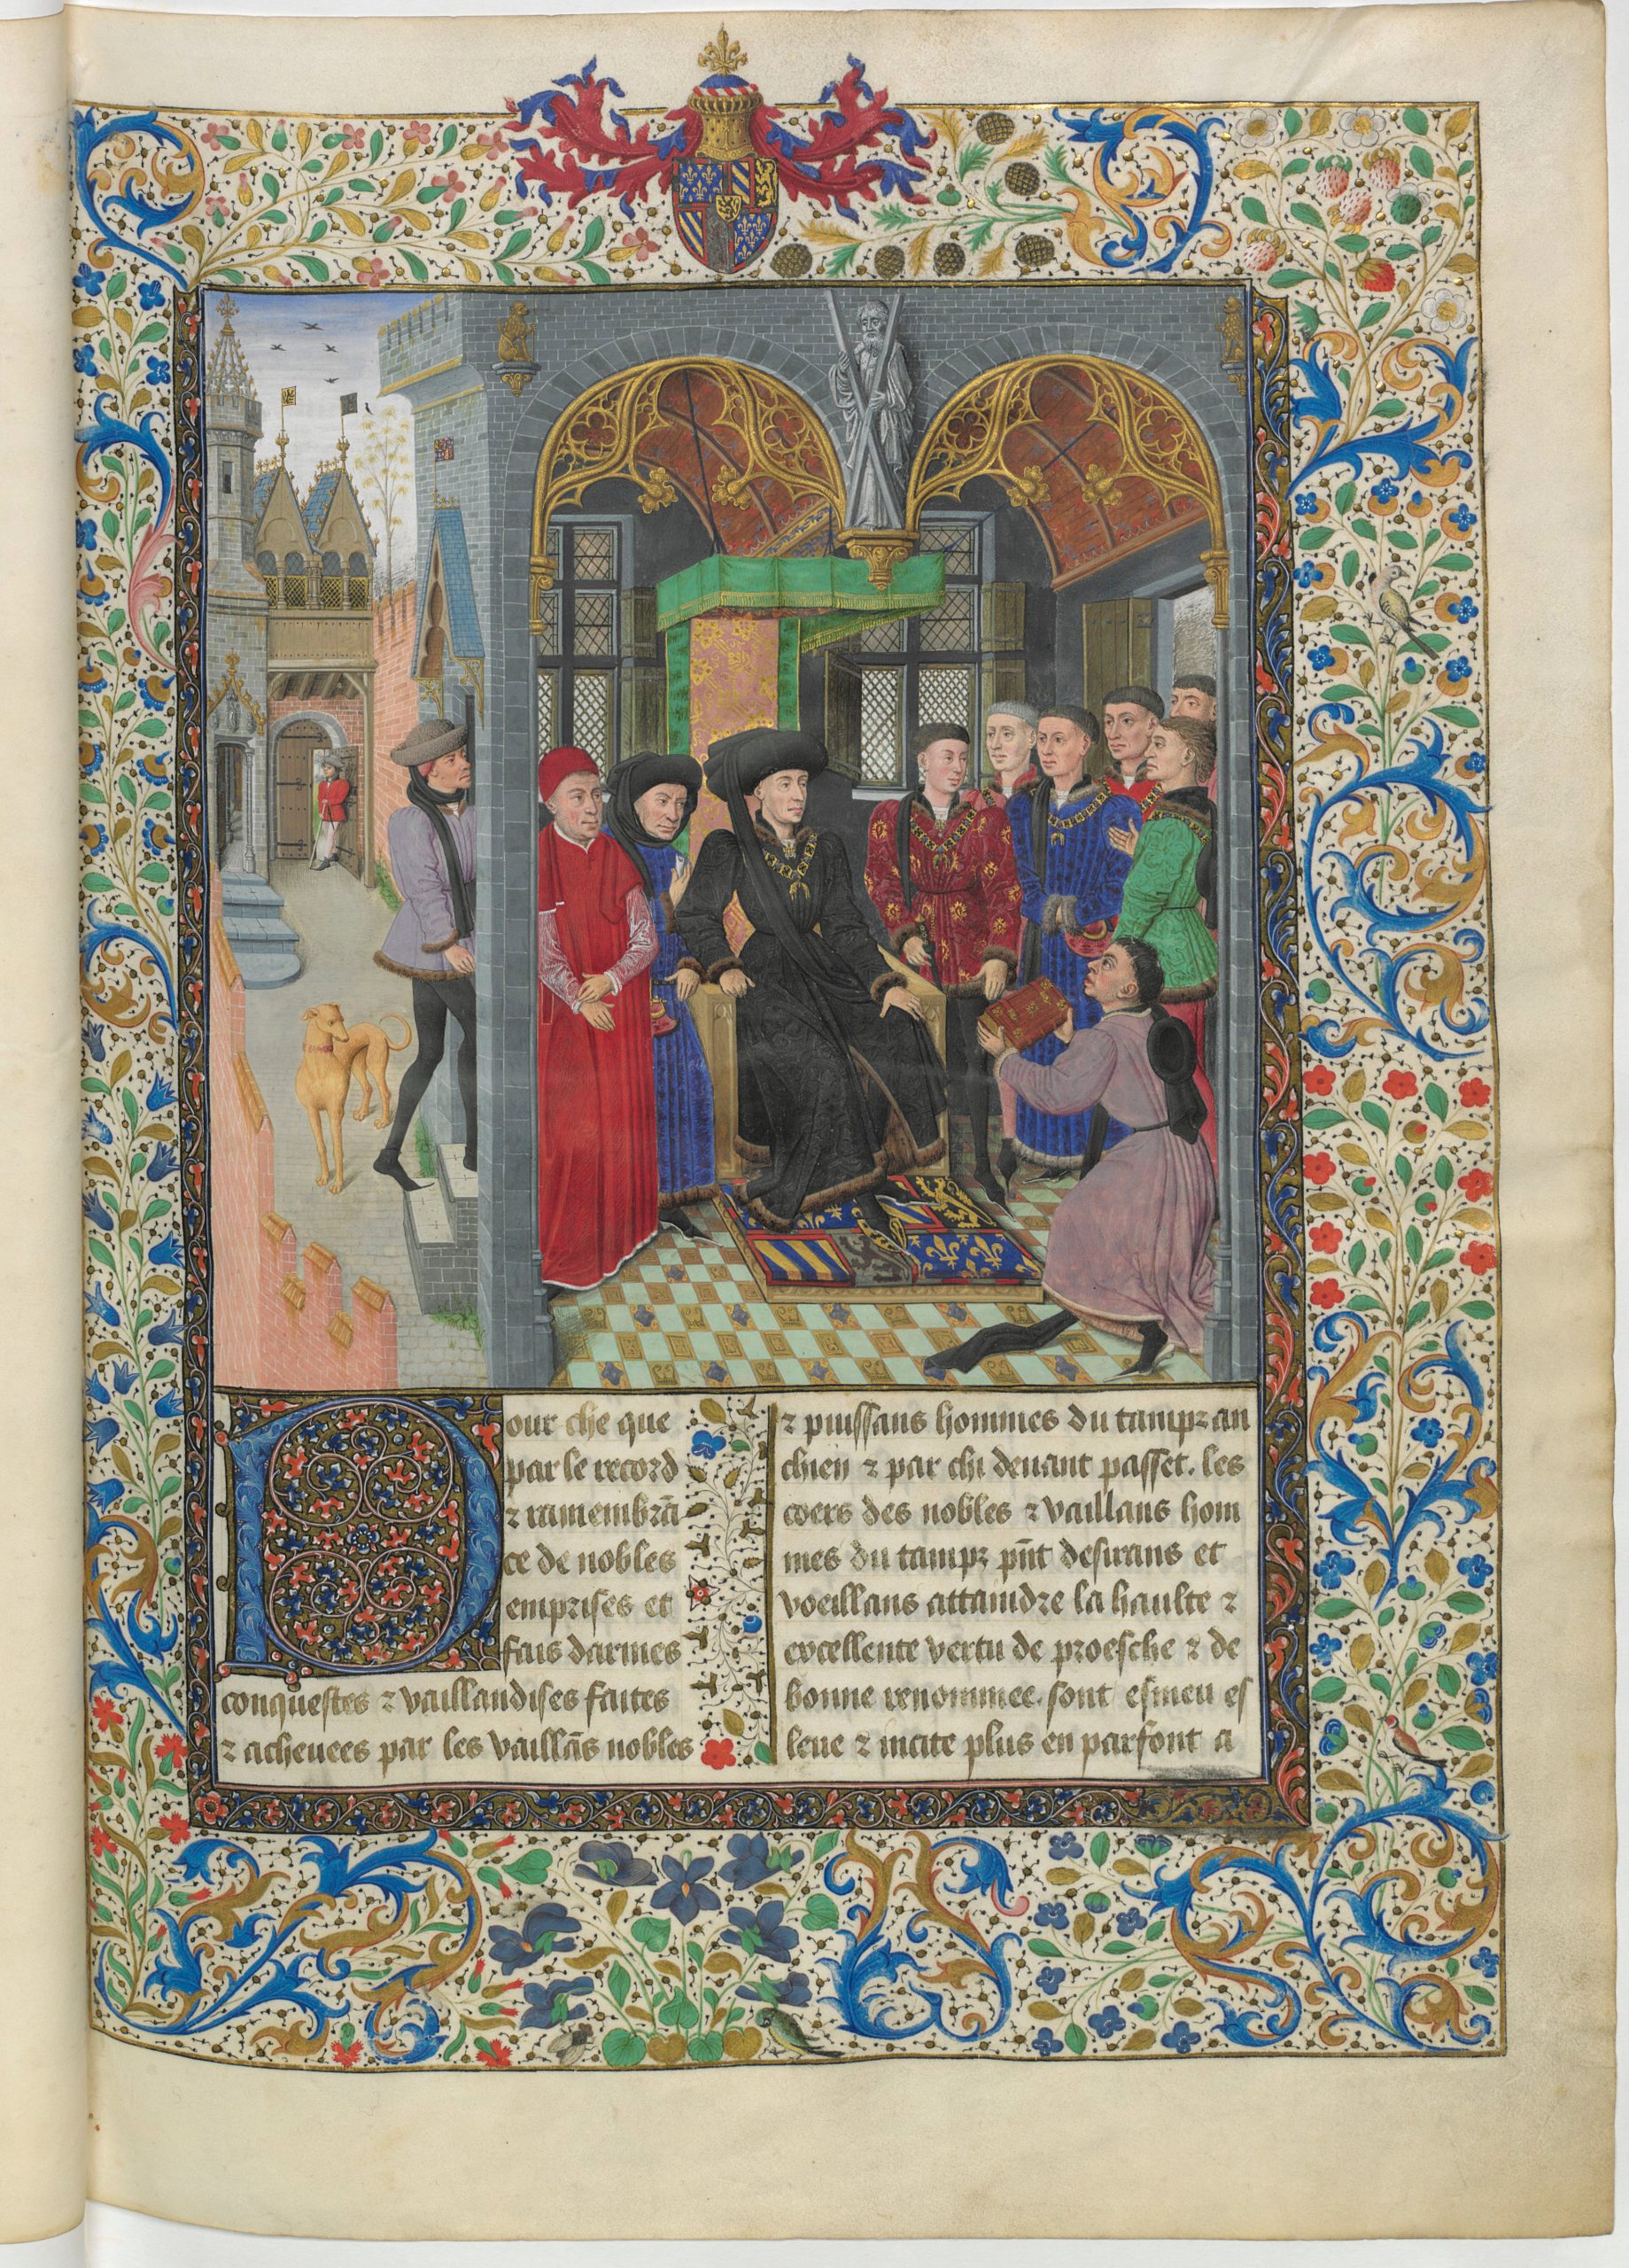 Pour che que
par le record
⁊ ramembrã
ce de nobles
emprises et
fais darmes
conquestes ⁊ vaillandises faites
⁊ acheuees par les vaillãs nobles
⁊ puissans hommes du tampz an
chien ⁊ par chi deuant passet. les
coers des nobles ⁊ vaillans hom
mes du tampz pñt desirans et
voeillans attaindre la haulte ⁊
excellente vertu de proesche ⁊ de
bonne renommee. sont esmeu es
leue ⁊ incite plus en parfont a